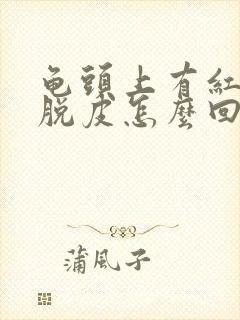 龟頭上有紅
脱皮怎麼回
蒲風子